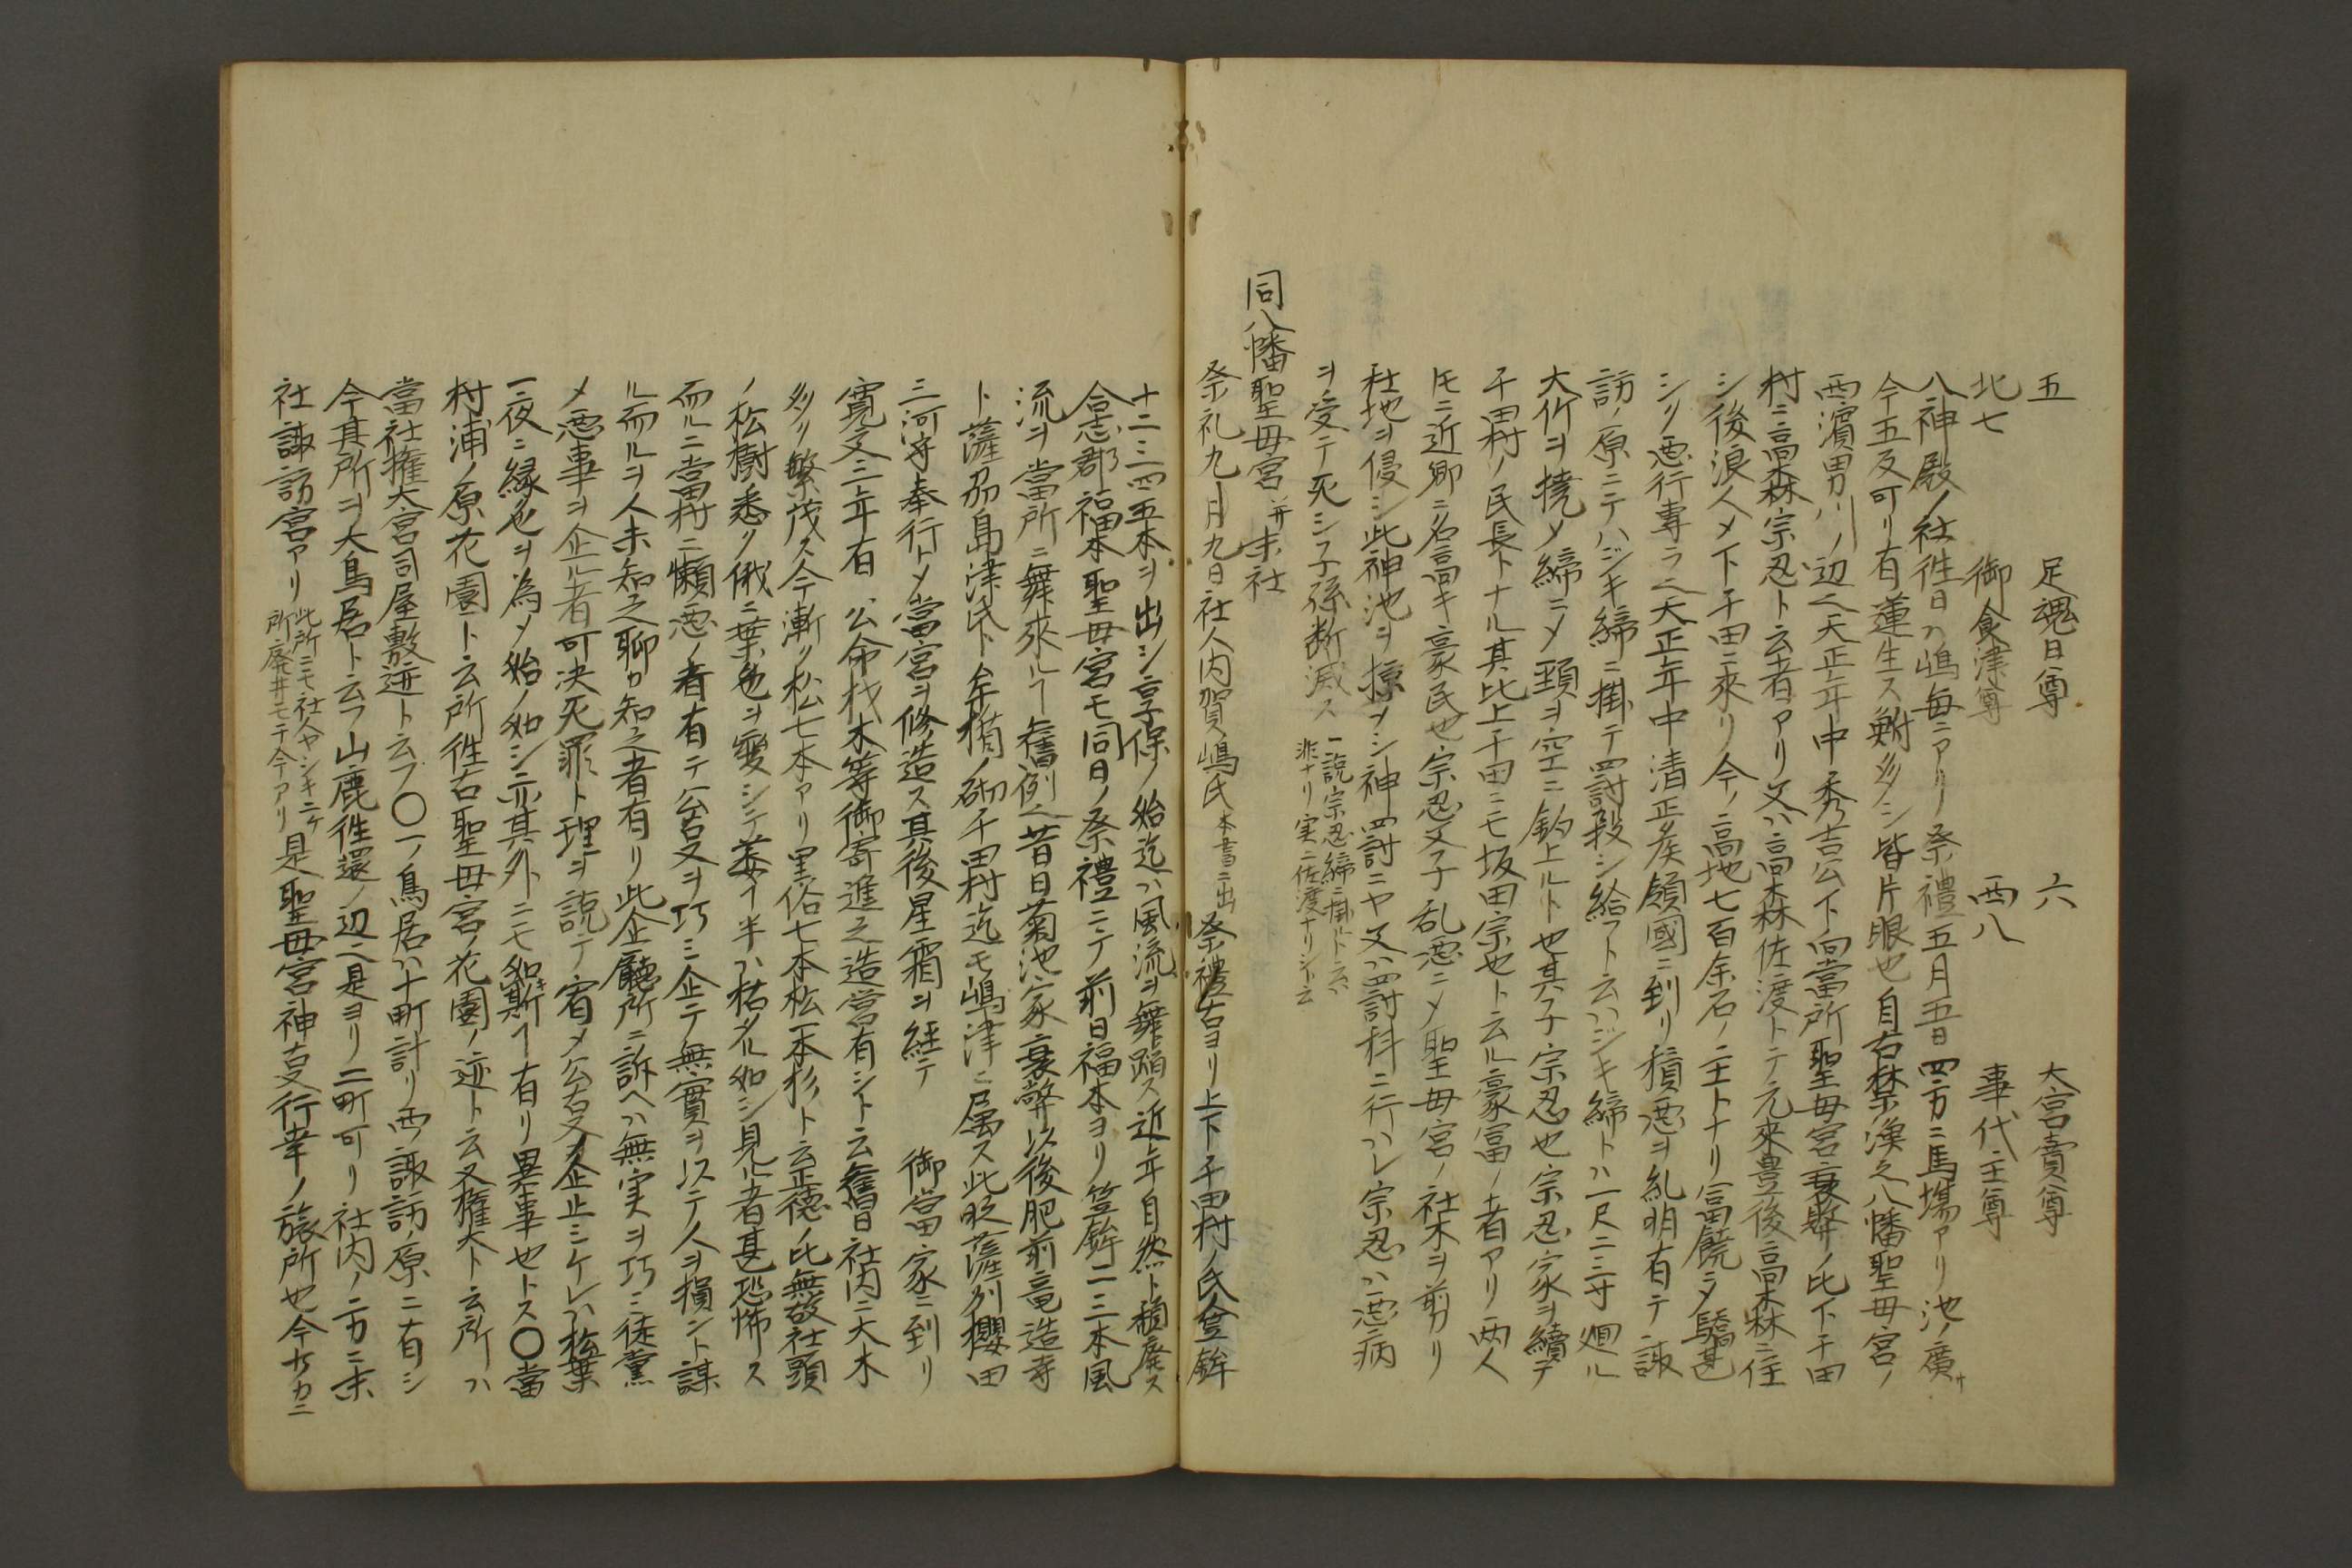 五　足魂日尊　六　大宮賣尊
北七　御食津尊　西八　事代主尊
八神殿ノ社徃日ハ嶋毎ニアリ祭禮五月五日四方ニ馬場アリ池ノ廣サ
今五反可リ有蓮生ス鮒多シ皆片眼也自右禁漁之八幡聖母宮ノ
西濱男川ノ辺ヘ天正年中秀吉公下向當所聖母宮衰弊ノ比下千田
村ニ高森宗忍ト云者アリ又ハ高森佐渡トテ元來豊後高森ニ住
シ後浪人メ下千田ニ來リ今ノ高地七百余石ノ主トナリ富饒ニメ驕甚
シリ悪行專ラ之天正年中清正矦領國ニ到リ積悪ヲ糺明有テ諏
訪ノ原ニテハジキ締ニ掛テ四討殺シ給フト云ハジキ締トハ一尺二三寸廻ル
大竹ヲ撓メ締ニメ頭ヲ空ニ釣上ルト也其子宗忍也宗忍家ヲ續テ
千田村ノ民長トナル其比上千田ニモ坂田宗也ト云ル豪冨ノ者アリ両人
トモニ近郷ニ名高キ豪民也宗忍父子乱悪ニメ聖母宮ノ社木ヲ剪リ
社地ヲ侵シ此神池ヲ掠メシ神罰ニヤ父ハ罰科ニ行ハレ宗忍ハ悪病
ヲ受テ死シ子孫断滅ス　一説宗忍締ニ掛ルト云ハ
非ナリ実ニ佐渡ナリシト云
同八幡聖母宮并末社
祭礼九月九日社人内賀嶋氏本書ニ出祭禮古ヨリ上下千田村ノ氏人笠鉾
十二三四五本ヲ出シ享保ノ始迄ハ風流ヲ舞踊ス近年自然ト頽廃ス
合志郡福本聖母宮モ同日ノ祭禮ニテ前日福本ヨリ笠鉾一二三本風
流ヲ當所ニ舞來ルヿ舊例之昔日菊池家衰弊以後肥前竜造寺
ト薩刕島津氏ト争橫ノ砌千田村迄モ嶋津ニ属ス此时薩刕櫻田
三河守奉行トメ當宮ヲ修造ス其後星霜ヲ経テ　御當家ニ到リ
寛文二年有　公命材木等御寄進之造営有シト云舊日社内ニ大木
多リ繁茂ス今漸ク松七本アリ里俗七本松一本杉ト云正徳ノ比無故社頭
ノ松樹悉ク俄ニ葉色ヲ變シテ萎ヿ半ハ枯タル如シ見ル者甚恐怖ス
而ルニ當村ニ懶悪ノ者有テ公妄ヲ巧ミ企テ無實ヲ以テ人ヲ損ント謀
ル而ルヲ人未知之聊カ知之者有リ此企廳所ニ訴ヘハ無実ヲ巧ミ徒黨
メ悪事ヲ企ル者可決死罪ト理ヲ説テ宥メ公妄ヲ企止ミケレハ松葉
一夜ニ緑色ヲ為メ始ノ如シ亦其外ニモ如斯キヿ有リ異事也トス〇當
村浦ノ原花園ト云所徃古聖母宮ノ花園ノ迹ト云又権大ト云所ハ
當社権大宮司屋敷迹ト云フ〇一ノ鳥居ハ十町計リ西諏訪ノ原ニ有シ
今其所ヲ大鳥居ト云フ山鹿徃還ノ辺之是ヨリ二町可リ社内ノ二方ニ末
社諏訪宮アリ　此所ニモ社人ヤシキ二ケ
所廃井モテ今アリ　是聖母宮神妄行幸ノ旅所也今サカニ